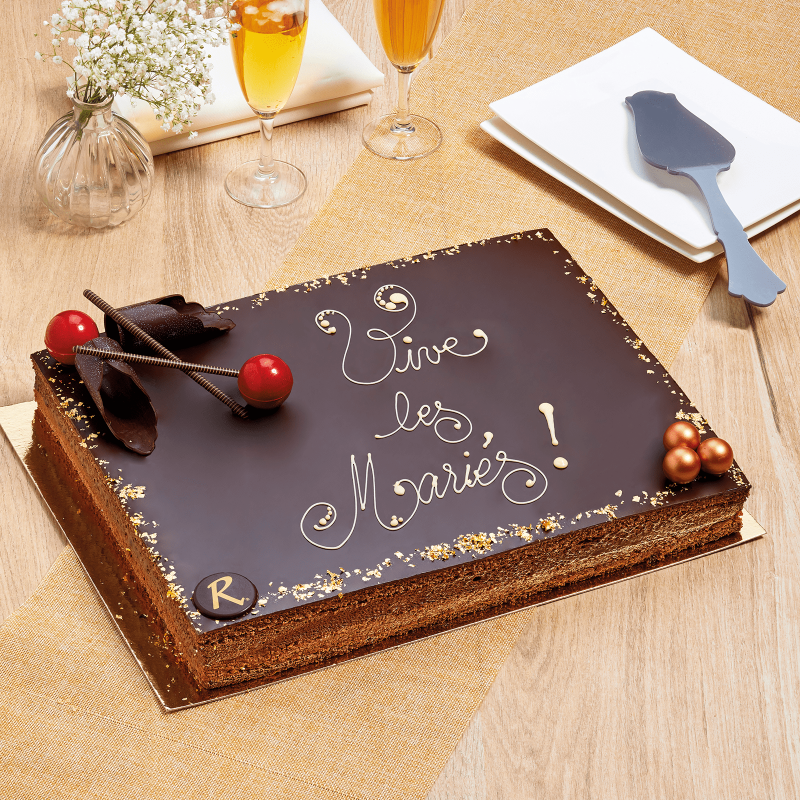 Vive
les
Mariés !
R